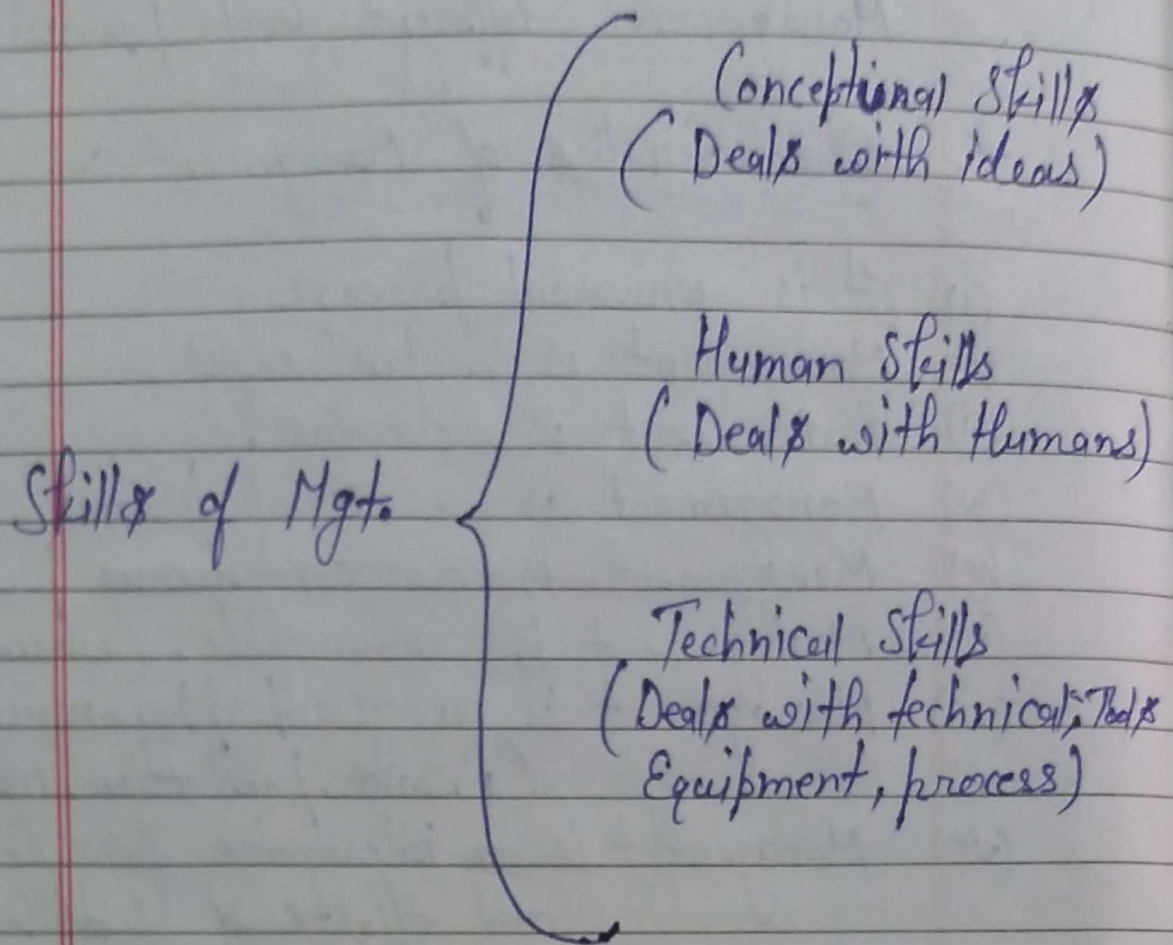 Conceptional Skills
(Deals with ideas)
Human Skills
(Deals with Humans)
Skills of Mgt.
Technical Skills
(Deals with technical, Tools
Equipment, process)